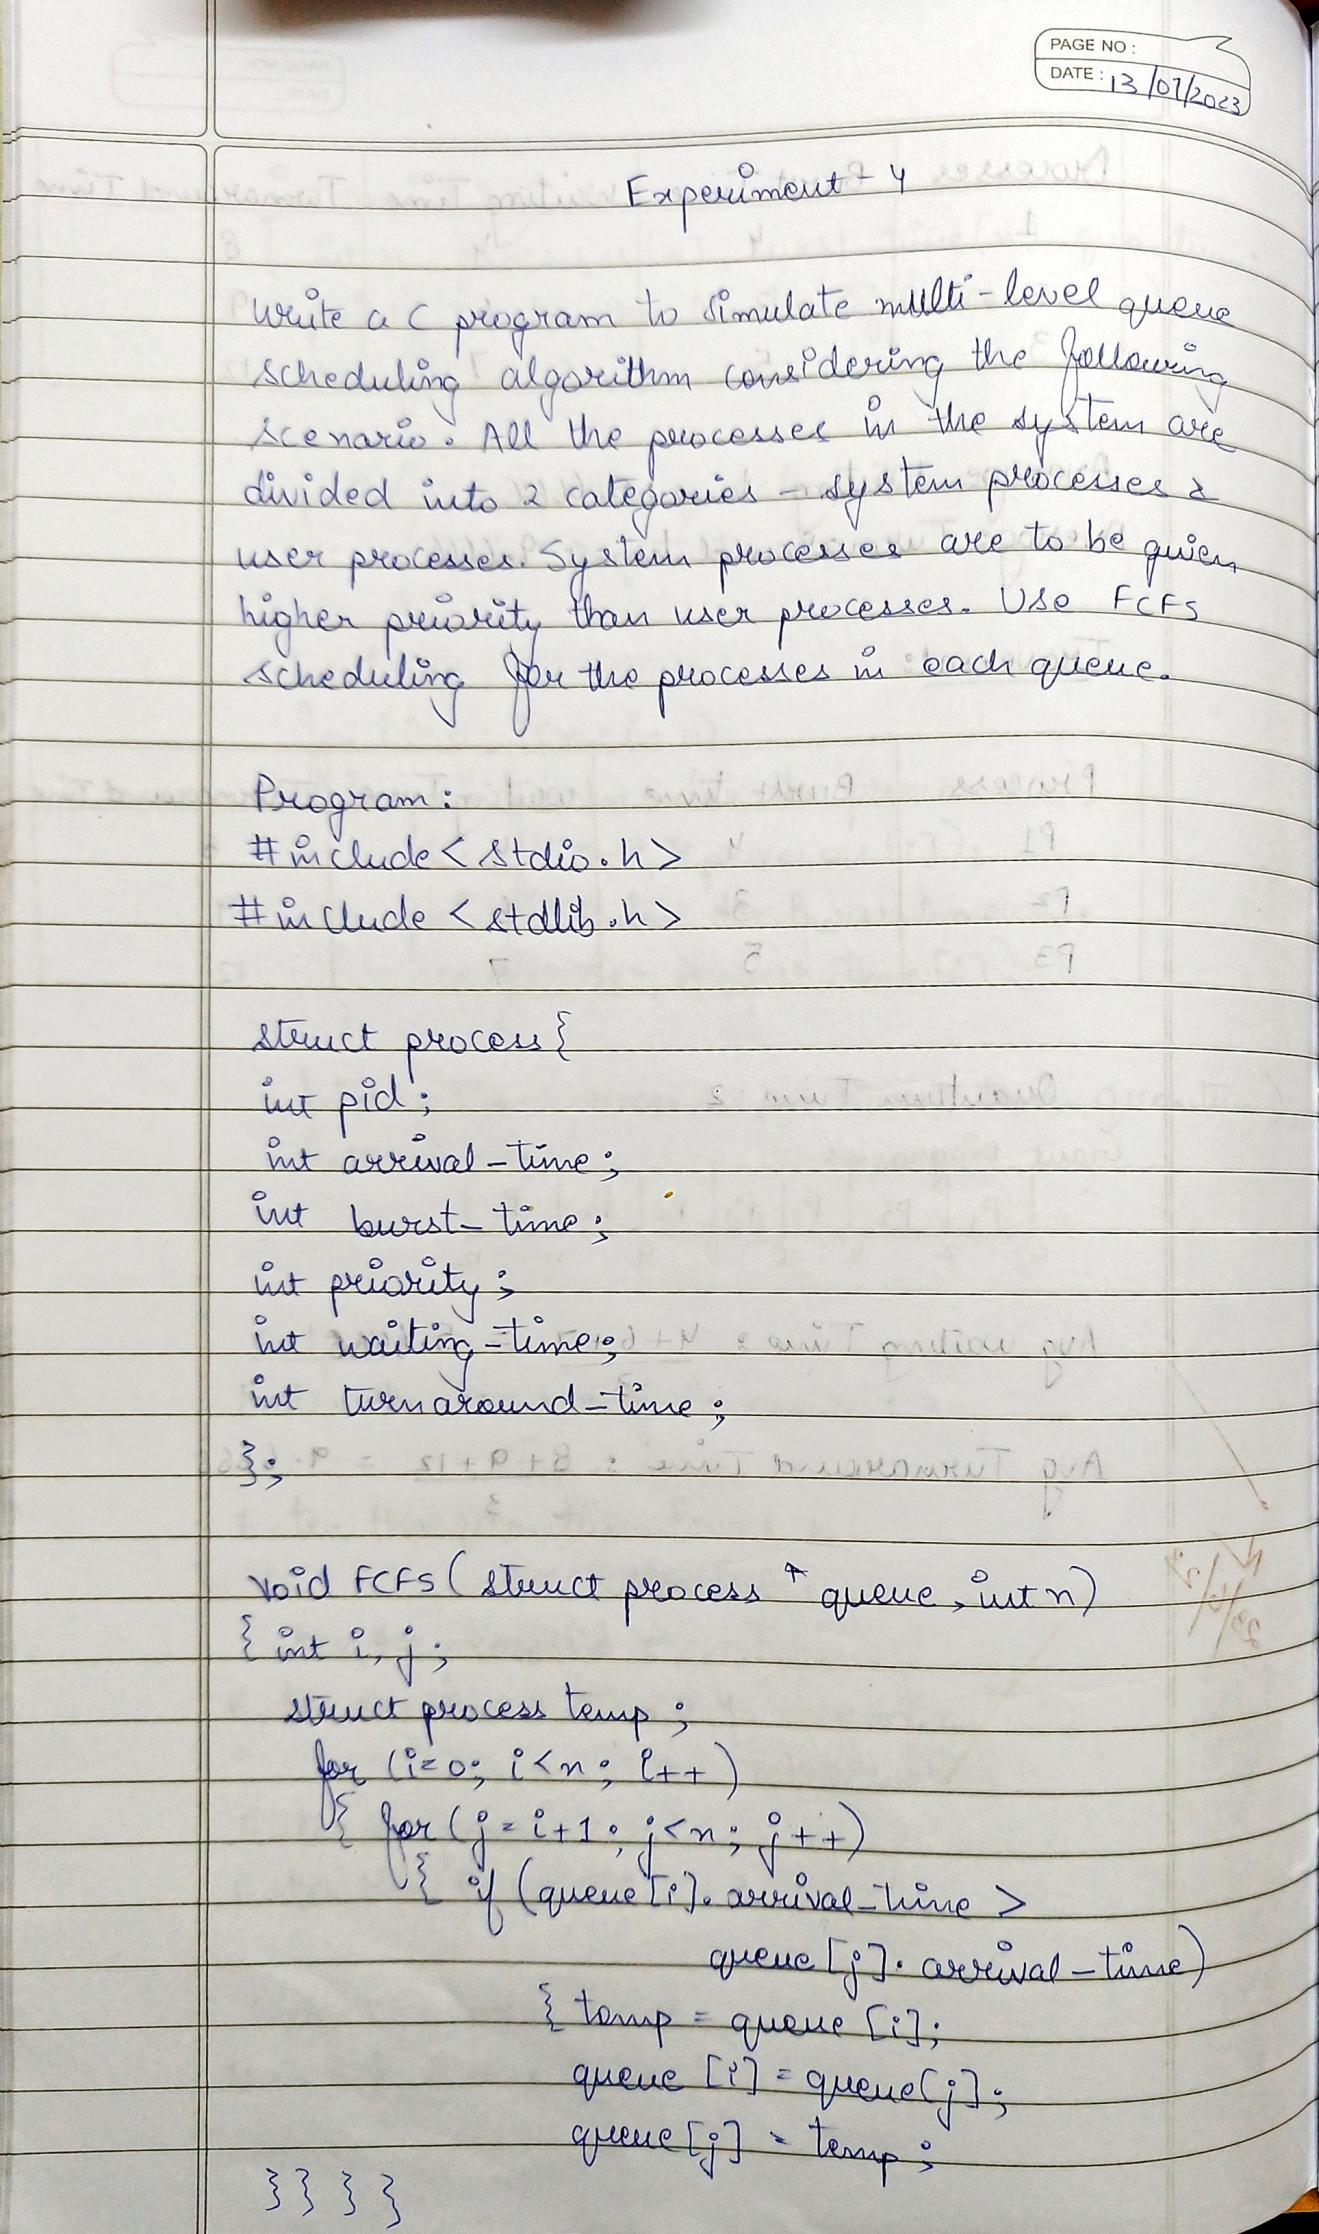 PAGE NO :
DATE : 13/07/2023
Experiment - 4
Write a C program to simulate multi-level queue
scheduling algorithm considering the following
scenario. All the processes in the system are
divided into 2 categories - system processes &
user processes. System processes are to be given
higher priority than user processes. Use FCFS
scheduling for the processes in each queue.
Program :
#include < stdio.h >
#include < stdlib.h >
struct process {
int pid ;
int arrival_time ;
int burst_time ;
int priority ;
int waiting_time ;
int turnaround_time ;
} ;
void FCFS ( struct process * queue , int n )
{ int i, j ;
struct process temp ;
for ( i = 0 ; i < n ; i++ )
{ for ( j = i + 1 ; j < n ; j++ )
{ if ( queue [i]. arrival_time >
queue [j]. arrival_time )
{ temp = queue [i] ;
queue [i] = queue [j] ;
queue [j] = temp ;
} } } }